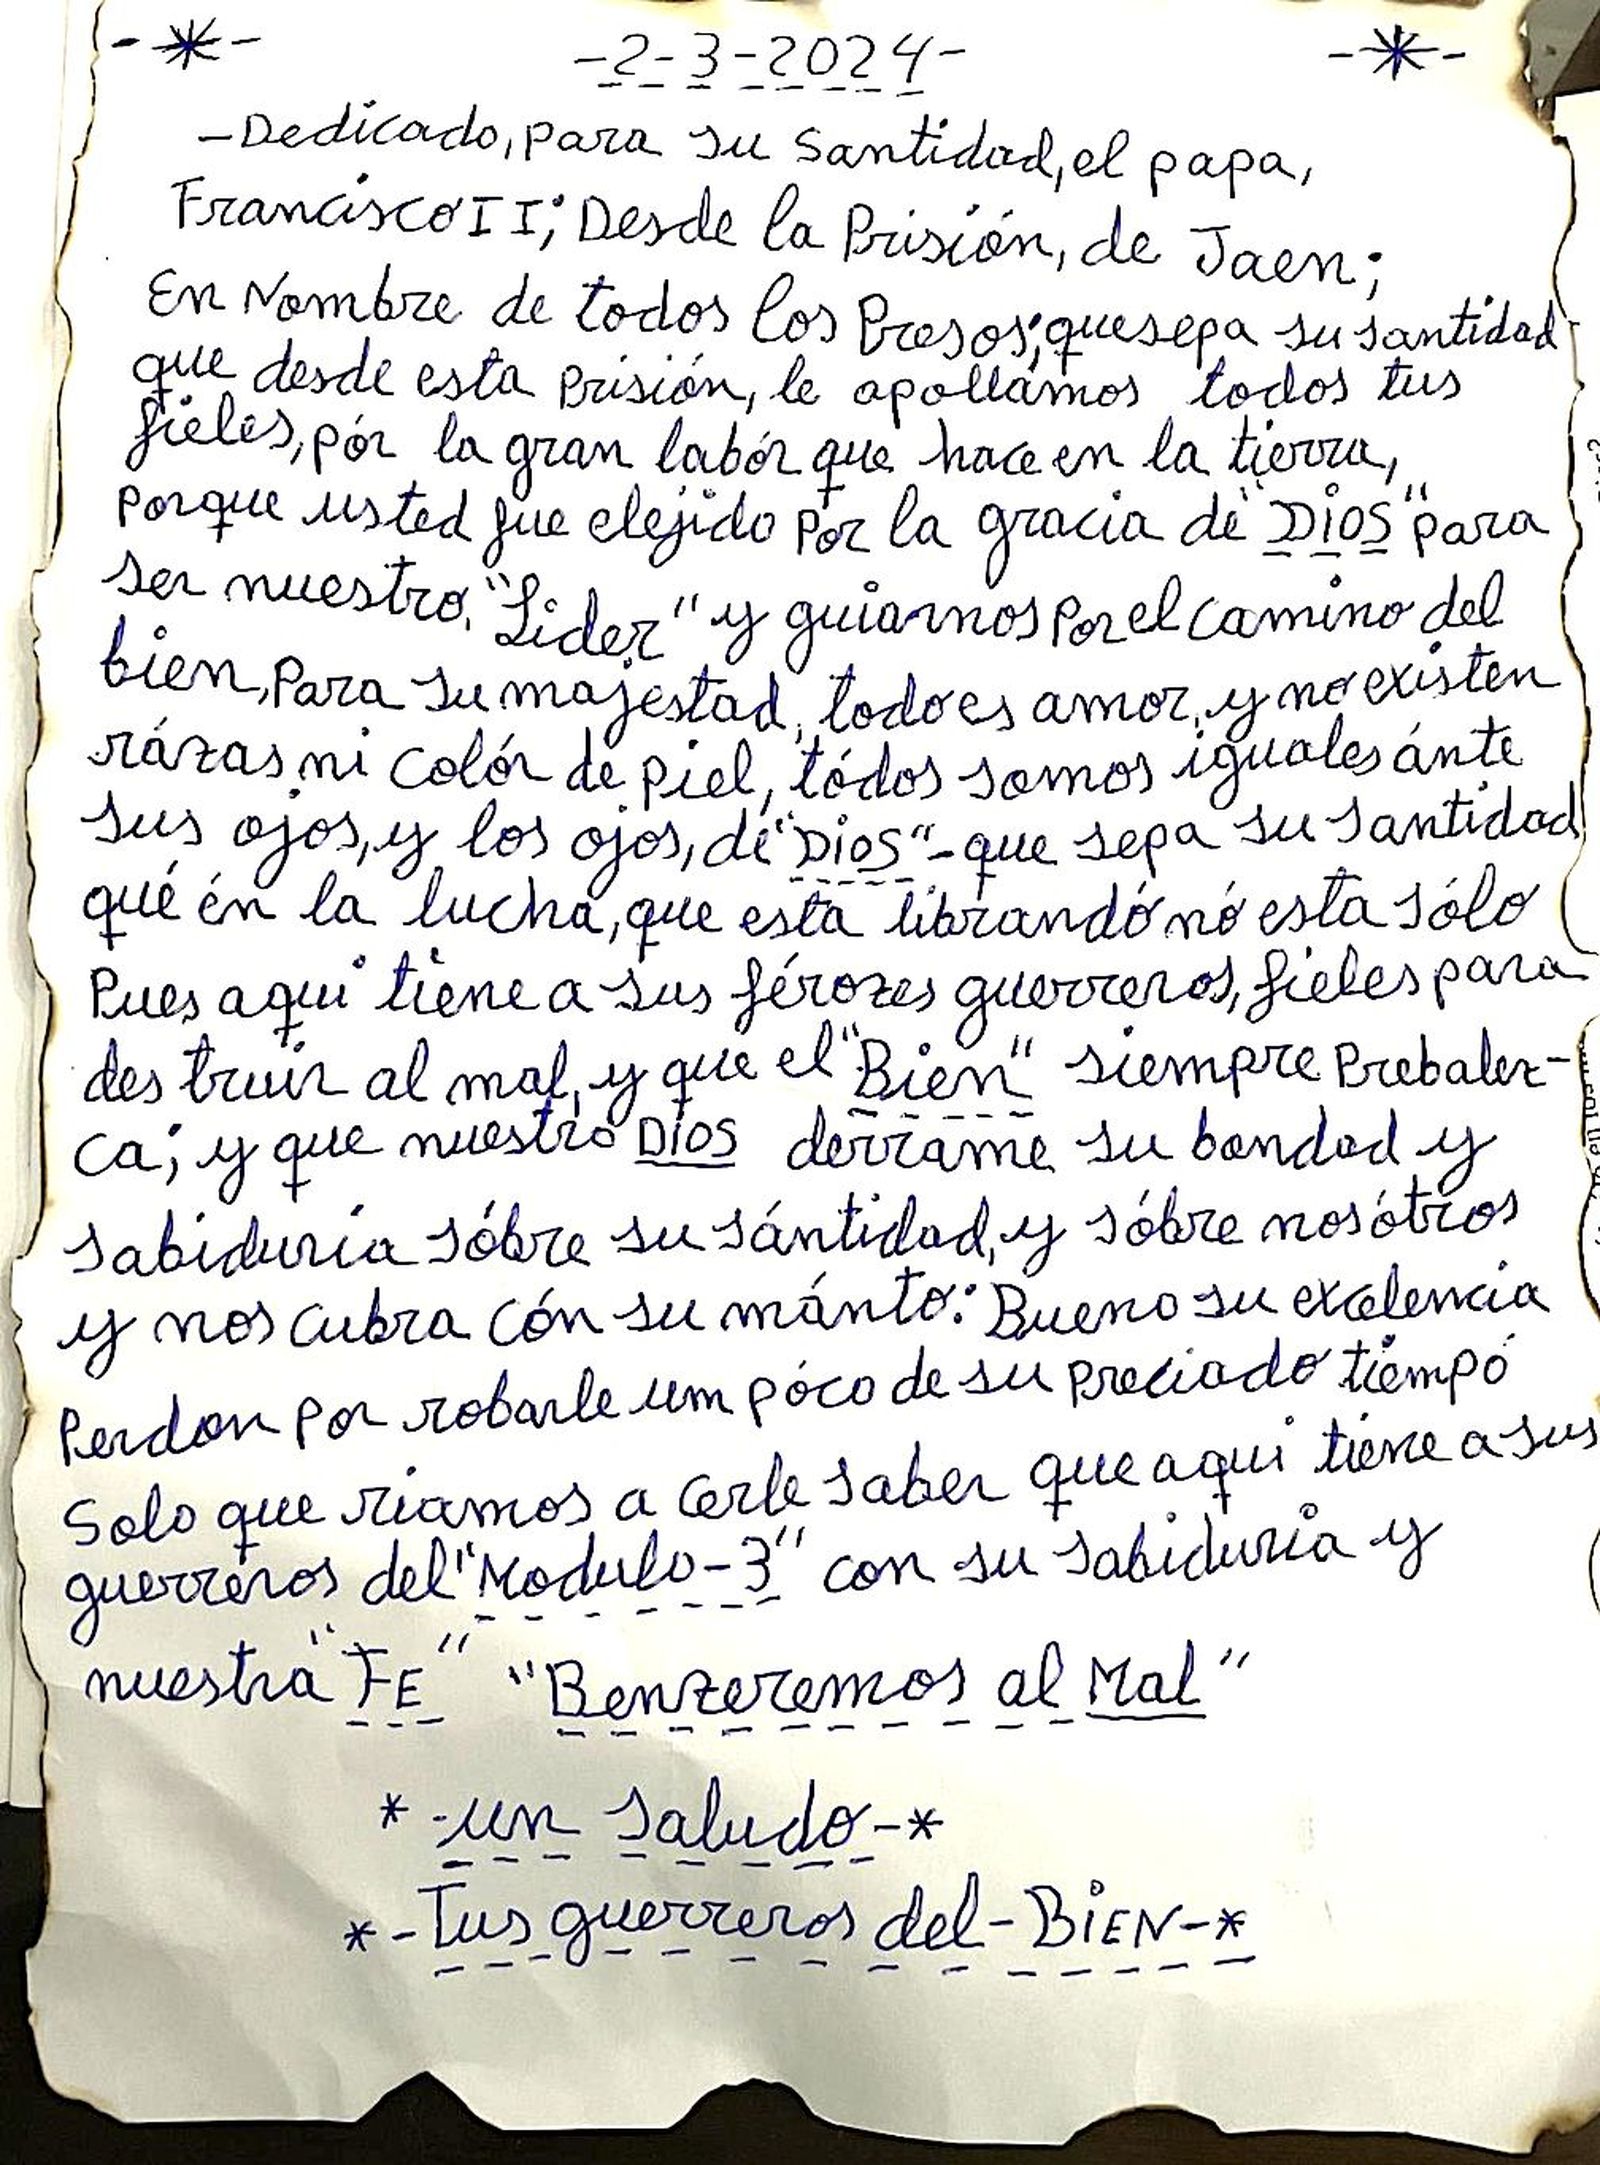 -*- -2-3-2024- -*-
-Dedicado, para su Santidad, el papa,
Francisco II; Desde la Prisión, de Jaen;
En Nombre de todos los Presos; que sepa su santidad
que desde esta Prisión, le apollámos todos tus
fieles, pór la gran labór que hace en la tierra,
Porque usted fue elejido Por la gracia de "DiOS" para
ser nuestro, "Lider" y guiarnos Por el camino del
bien, Para su majestad, todo es amor, y no existen
rázas ni Colór de piel, tódos somos iguales ánte
sus ojos, y los ojos, de "DiOS" - que sepa su santidad
qué én la lucha, que esta librandó nó esta sólo
Pues aqui tiene a sus férozes guerreros, fieles para
destruir al mal, y que el "Bien" siempre Prebalez-
ca; y que nuestro DiOS derrame su bondad y
sabiduria sóbre su sántidad, y sóbre nosótros
y nos cubra cón su mánto: Bueno su excelencia
Perdon Por robarle um póco de su preciado tiempó
Solo que riamos a cerle saber que aqui tiene a sus
guerreros del "Modulo-3" con su sabiduria y
nuestra "FE" "Benzeremos al Mal"
* -un saludo- *
* -Tus guerreros del - BiEN - *